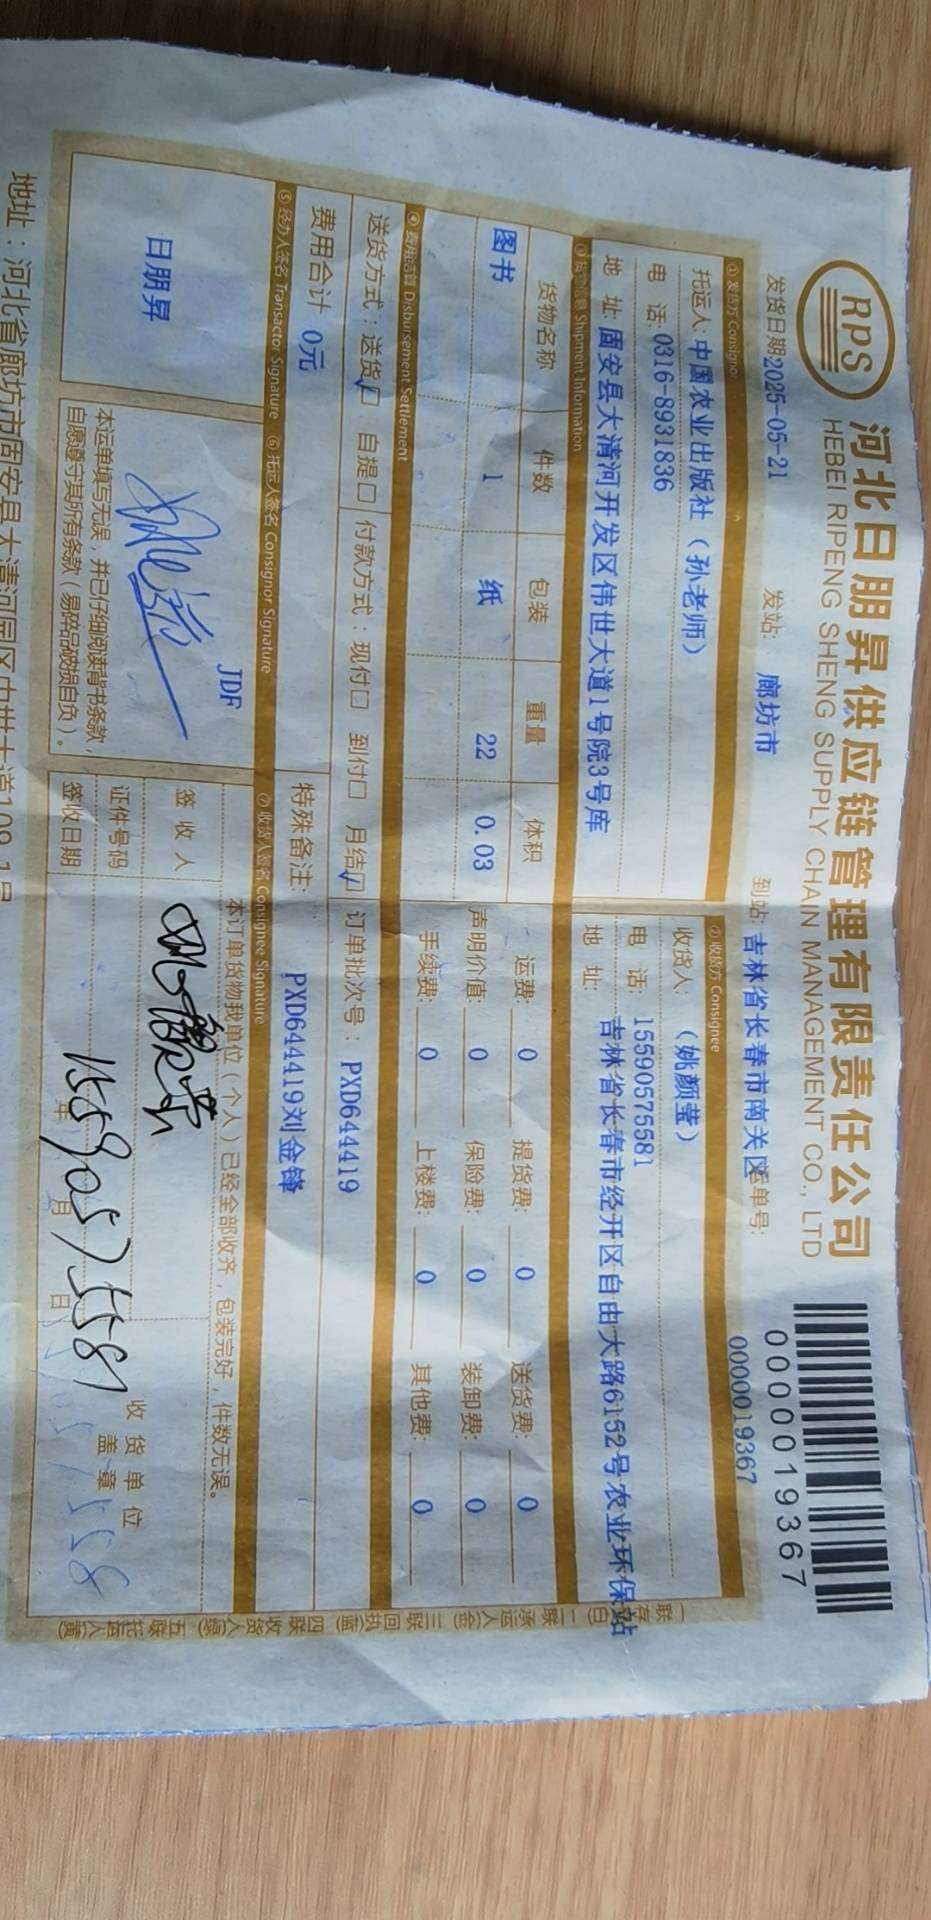 RPS
河北日朋昇供应链管理有限责任公司
HEBEI RIPENG SHENG SUPPLY CHAIN MANAGEMENT CO., LTD
0000019367
发货日期2025-05-21 发站: 廊坊市 到站: 吉林省长春市南关区 运单号: 0000019367
① 发货方 Consignor
托运人: 中国农业出版社（孙老师）
电 话: 0316-8931836
地 址: 固安县大清河开发区伟世大道1号院3号库
② 收货方 Consignee
收货人: （姚颜莹）
电 话: 15590575581
地 址: 吉林省长春市经开区自由大路6152号农业环保站
③ 货物信息 Shipment Information
货物名称 件数 包装 重量 体积
图书 1 纸 22 0.03
运费: 0 提货费: 0 送货费: 0
声明价值: 0 保险费: 0 装卸费: 0
手续费: 0 上楼费: 0 其他费: 0
④ 费用结算 Disbursement Settlement
送货方式：送货☑ 自提☐ 付款方式：现付☐ 到付☐ 月结☑ 订单批次号：PXD644419
费用合计 0元 特殊备注: PXD644419刘金锋
⑤ 经办人签名 Transactor Signature ⑥ 托运人签名 Consignor Signature ⑦ 收货人签名 Consignee Signature
日朋昇
JDF
本运单填写无误，并已仔细阅读背书条款，
自愿遵守其所有条款（易碎品破损自负）。
本订单货物我单位（个人）已经全部收齐，包装完好，件数无误。
签 收 人
证件号码
15590575581
签收日期 年 月 日
收货单位
盖 章
一联存根(白) 二联承运人(金) 三联回执(蓝) 四联收货人(绿) 五联托运人(黄)